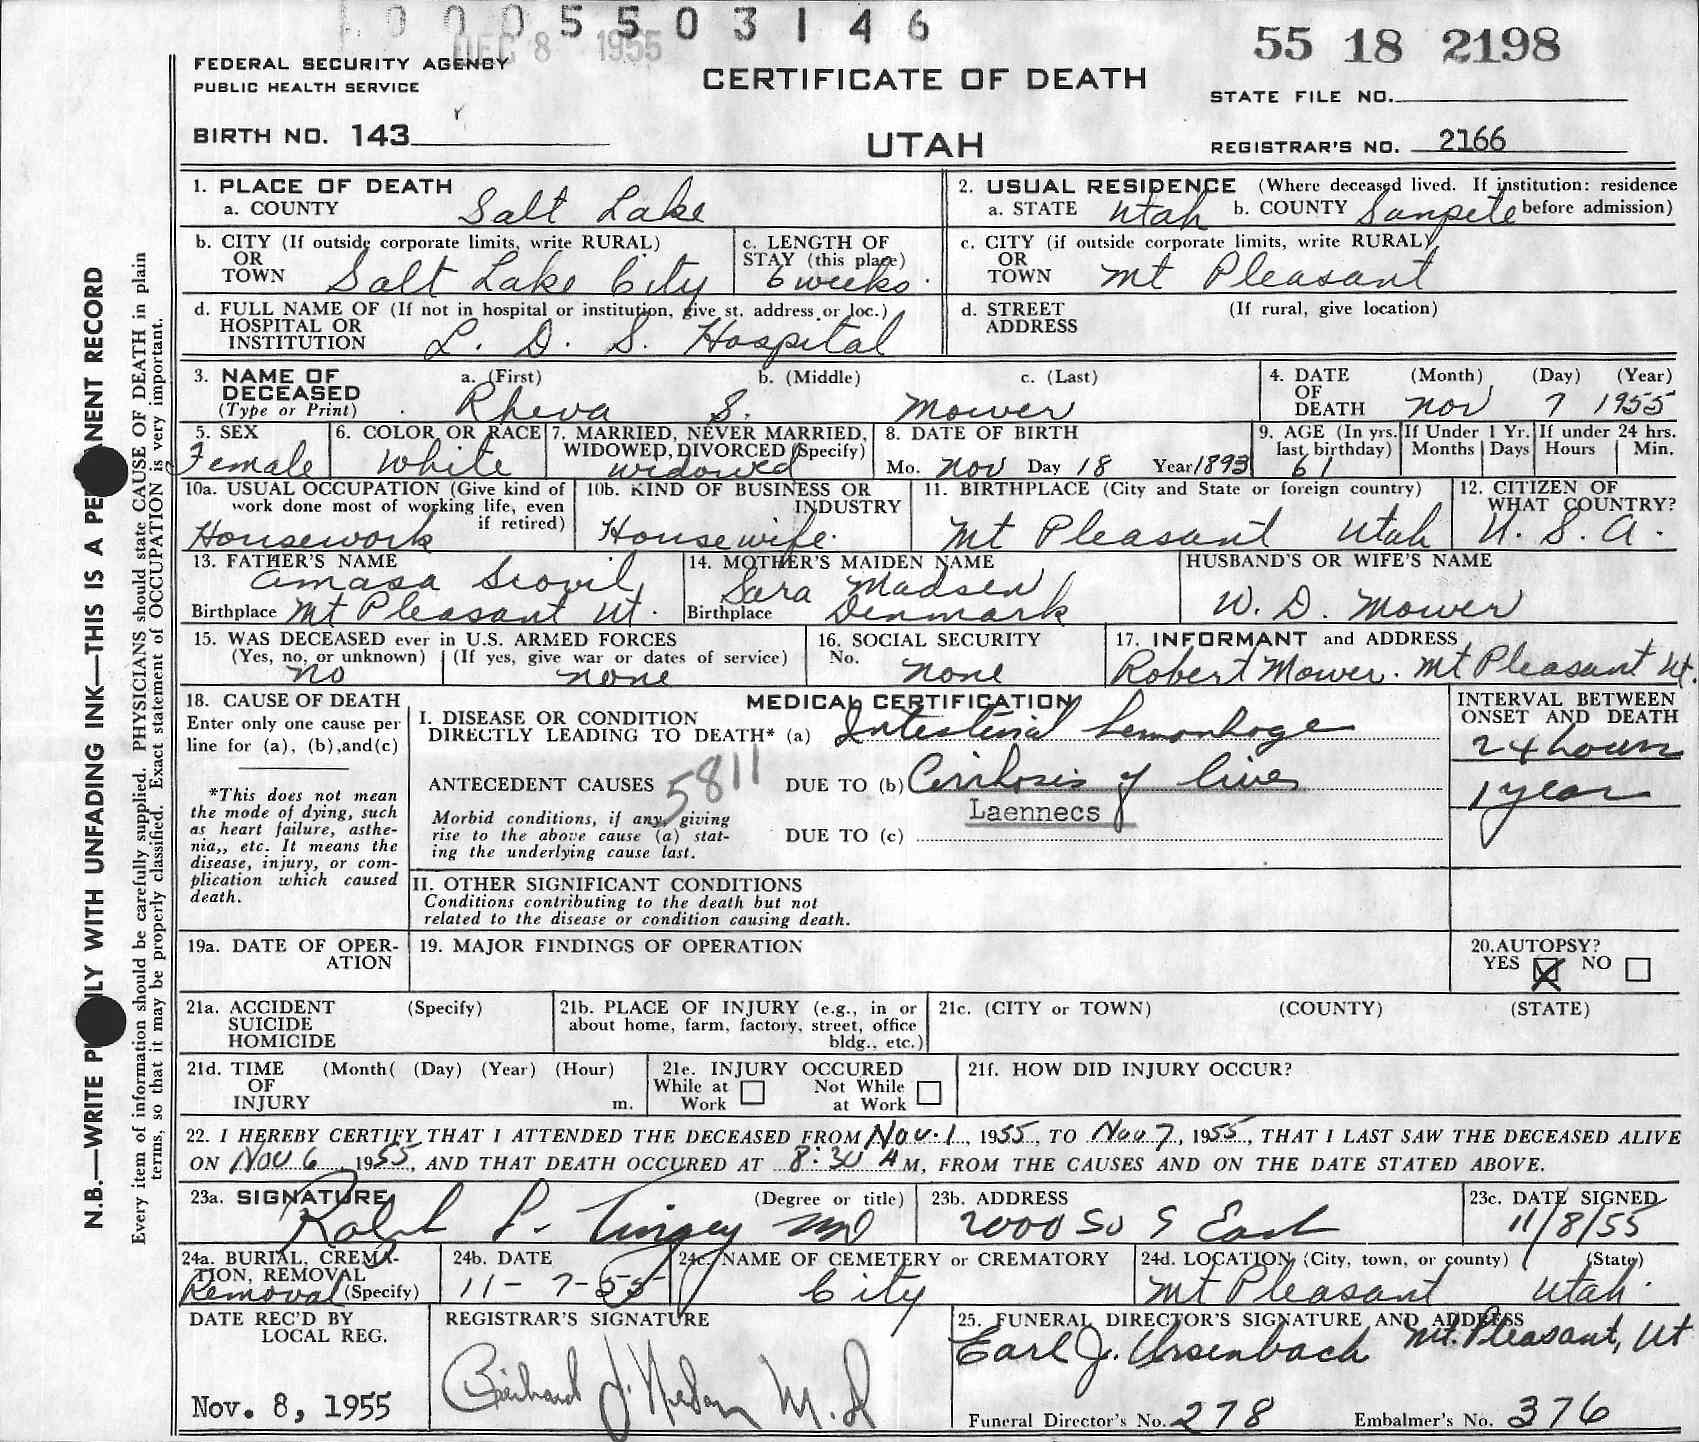 0005503146
DEC 8 1955
55 18 2198
FEDERAL SECURITY AGENCY
PUBLIC HEALTH SERVICE
CERTIFICATE OF DEATH
STATE FILE NO.
BIRTH NO. 143
UTAH
REGISTRAR'S NO. 2166
1. PLACE OF DEATH
a. COUNTY Salt Lake
2. USUAL RESIDENCE (Where deceased lived. If institution: residence
a. STATE Utah b. COUNTY Sanpete before admission)
b. CITY (If outside corporate limits, write RURAL)
OR
TOWN Salt Lake City
c. LENGTH OF
STAY (this place)
6 weeks.
c. CITY (if outside corporate limits, write RURAL)
OR
TOWN Mt Pleasant
d. FULL NAME OF (If not in hospital or institution, give st. address or loc.)
HOSPITAL OR
INSTITUTION L. D. S. Hospital
d. STREET (If rural, give location)
ADDRESS
3. NAME OF a. (First) b. (Middle) c. (Last)
DECEASED
(Type or Print) Rheva S. Mower
4. DATE (Month) (Day) (Year)
OF
DEATH Nov 7 1955
5. SEX
Female
6. COLOR OR RACE
White
7. MARRIED, NEVER MARRIED,
WIDOWED, DIVORCED (Specify)
widowed
8. DATE OF BIRTH
Mo. Nov Day 18 Year 1893
9. AGE (In yrs.
last birthday)
61
If Under 1 Yr.
Months Days
If under 24 hrs.
Hours Min.
10a. USUAL OCCUPATION (Give kind of
work done most of working life, even
if retired)
Housework
10b. KIND OF BUSINESS OR
INDUSTRY
Housewife.
11. BIRTHPLACE (City and State or foreign country)
Mt Pleasant Utah
12. CITIZEN OF
WHAT COUNTRY?
U. S. A.
13. FATHER'S NAME
Amasa Scovil
Birthplace Mt Pleasant Ut.
14. MOTHER'S MAIDEN NAME
Sara Madsen
Birthplace Denmark
HUSBAND'S OR WIFE'S NAME
W. D. Mower
15. WAS DECEASED ever in U.S. ARMED FORCES
(Yes, no, or unknown) (If yes, give war or dates of service)
no none
16. SOCIAL SECURITY
No.
none
17. INFORMANT and ADDRESS
Robert Mower. Mt Pleasant Ut.
18. CAUSE OF DEATH
Enter only one cause per
line for (a), (b),and(c)
*This does not mean
the mode of dying, such
as heart failure, asthe-
nia,, etc. It means the
disease, injury, or com-
plication which caused
death.
MEDICAL CERTIFICATION
I. DISEASE OR CONDITION
DIRECTLY LEADING TO DEATH* (a) Intestinal hemorrhage
ANTECEDENT CAUSES 5811 DUE TO (b) Cirrhosis of liver
Laennecs
Morbid conditions, if any, giving
rise to the above cause (a) stat-
ing the underlying cause last.
DUE TO (c)
INTERVAL BETWEEN
ONSET AND DEATH
24 hours
1 year
II. OTHER SIGNIFICANT CONDITIONS
Conditions contributing to the death but not
related to the disease or condition causing death.
19a. DATE OF OPER-
ATION
19. MAJOR FINDINGS OF OPERATION
20.AUTOPSY?
YES NO
21a. ACCIDENT (Specify)
SUICIDE
HOMICIDE
21b. PLACE OF INJURY (e.g., in or
about home, farm, factory, street, office
bldg., etc.)
21c. (CITY or TOWN) (COUNTY) (STATE)
21d. TIME (Month( (Day) (Year) (Hour)
OF
INJURY m.
21e. INJURY OCCURED
While at Not While
Work at Work
21f. HOW DID INJURY OCCUR?
22. I HEREBY CERTIFY THAT I ATTENDED THE DECEASED FROM Nov. 1, 1955, TO Nov 7, 1955, THAT I LAST SAW THE DECEASED ALIVE
ON Nov 6 1955, AND THAT DEATH OCCURED AT 8:30 AM, FROM THE CAUSES AND ON THE DATE STATED ABOVE.
23a. SIGNATURE (Degree or title)
Ralph P. Tingey MD
23b. ADDRESS
2000 So 9 East
23c. DATE SIGNED
11/8/55
24a. BURIAL, CREMA-
TION, REMOVAL
Removal (Specify)
24b. DATE
11-7-55
24c. NAME OF CEMETERY or CREMATORY
City
24d. LOCATION (City, town, or county) (State)
Mt Pleasant Utah.
DATE REC'D BY
LOCAL REG.
Nov. 8, 1955
REGISTRAR'S SIGNATURE
M.D
25. FUNERAL DIRECTOR'S SIGNATURE AND ADDRESS
Earl J. Ursenbach Mt. Pleasant, Ut
Funeral Director's No. 278 Embalmer's No. 376
N.B.—WRITE PLAINLY WITH UNFADING INK—THIS IS A PERMANENT RECORD
Every item of information should be carefully supplied. PHYSICIANS should state CAUSE OF DEATH in plain
terms, so that it may be properly classified. Exact statement of OCCUPATION is very important.